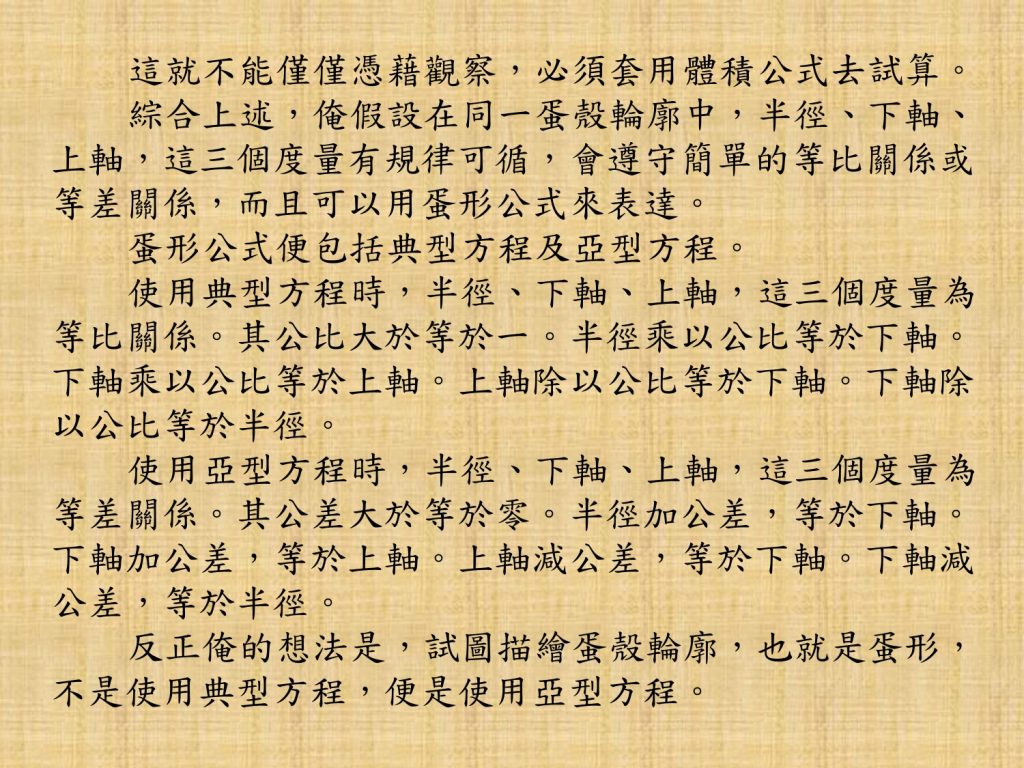 這就不能僅僅憑藉觀察，必須套用體積公式去試算。
綜合上述，俺假設在同一蛋殼輪廓中，半徑、下軸、
上軸，這三個度量有規律可循，會遵守簡單的等比關係或
等差關係，而且可以用蛋形公式來表達。
蛋形公式便包括典型方程及亞型方程。
使用典型方程時，半徑、下軸、上軸，這三個度量為
等比關係。其公比大於等於一。半徑乘以公比等於下軸。
下軸乘以公比等於上軸。上軸除以公比等於下軸。下軸除
以公比等於半徑。
使用亞型方程時，半徑、下軸、上軸，這三個度量為
等差關係。其公差大於等於零。半徑加公差，等於下軸。
下軸加公差，等於上軸。上軸減公差，等於下軸。下軸減
公差，等於半徑。
反正俺的想法是，試圖描繪蛋殼輪廓，也就是蛋形，
不是使用典型方程，便是使用亞型方程。